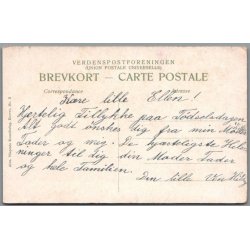 VERDENSPOSTFORENINGEN
(UNION POSTALE UNIVERSELLE)
BREVKORT – CARTE POSTALE
Correspondance Adresse
Kære lille Ellen!
Hjertelig Tillykke paa Fødselsdagen
Alt godt ønskes dig fra min Moder
Fader og mig. De hjerteligste Hils-
ninger til dig din Moder Fader
og hele Familien.
Din lille Ven